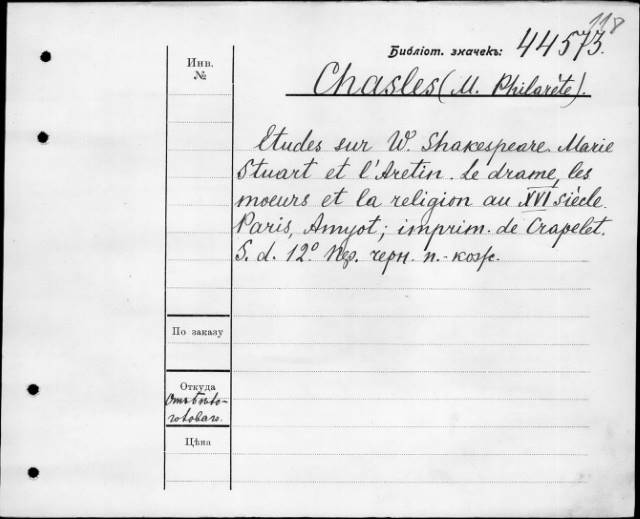 118
Библіот. значекъ: 44573.
Инв.
№
Chasles (M. Philarète).
Etudes sur W. Shakespeare. Marie
Stuart et l'Aretin. Le drame, les
moeurs et la religion au XVI siècle.
Paris, Amyot; imprim. de Crapelet.
S. d. 12° Пер. черн. п.-кожс.
По заказу
Откуда
Цѣна